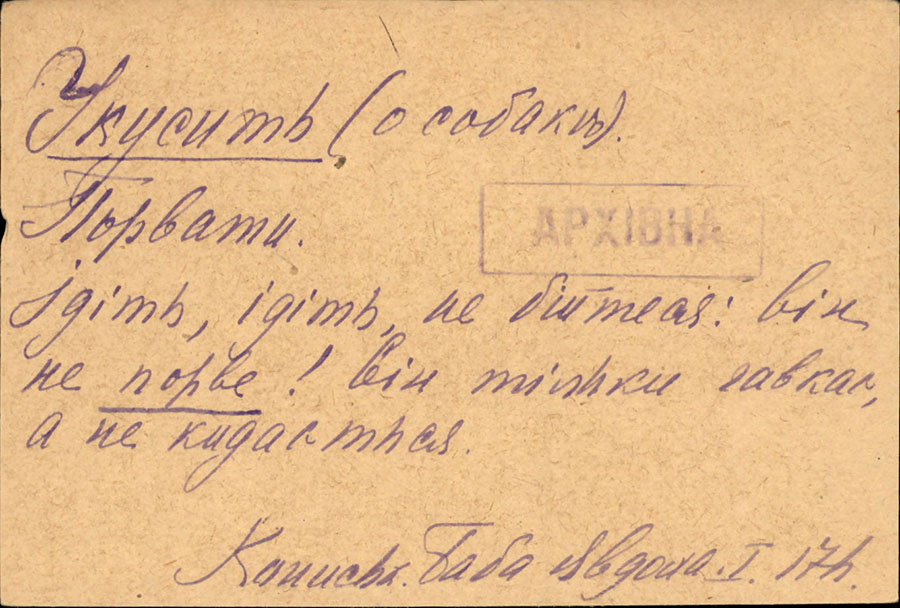 Укусить (о собакѣ).
Порвати.
АРХІВНА
Ідіть, ідіть, не бійтеся: він
не порве! Він тільки гавкає,
а не кидається.
Конись. Баба Явдоха. I. 174.